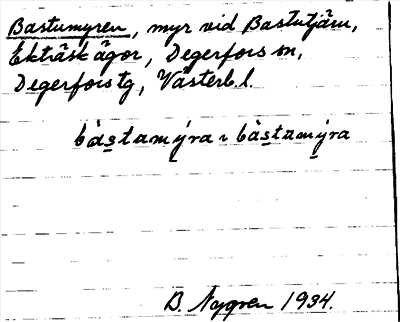 Bastumyren, myr vid Bastutjärn,
Ekträsk ägor, Degerfors sn,
Degerfors tg, Västerb. l.
bàstamýra ~ bàstamýra
B. Nygren 1934.